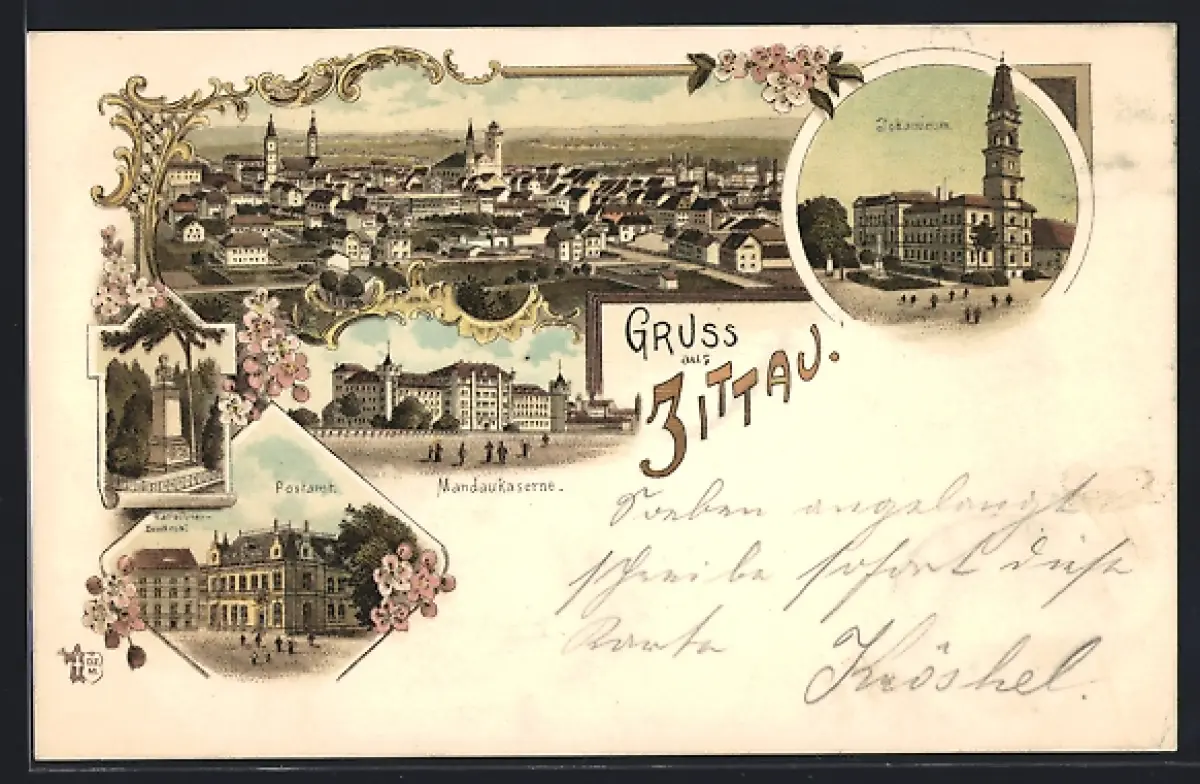 Johanneum.
GRUSS
aus
ZITTAU.
Mandaukaserne.
Postamt.
Denkmal
Soeben angelangt
schreibe sofort diese
Karte
Kröshel.